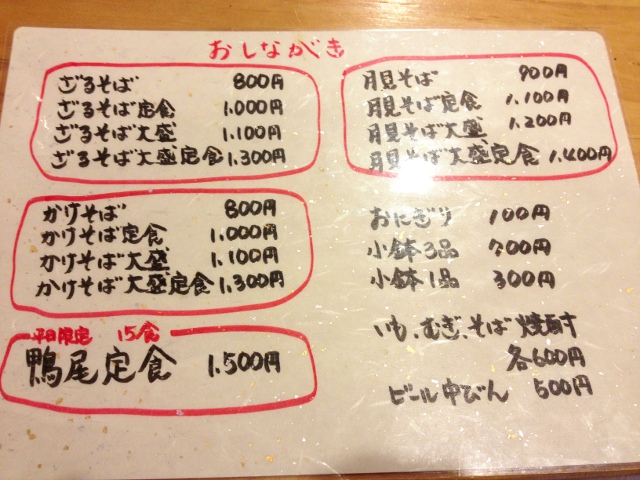 おしながき
ざるそば 800円
ざるそば定食 1.000円
ざるそば大盛 1.100円
ざるそば大盛定食 1.300円
かけそば 800円
かけそば定食 1.000円
かけそば大盛 1.100円
かけそば大盛定食 1.300円
平日限定 15食
鴨尾定食 1.500円
月見そば 900円
月見そば定食 1.100円
月見そば大盛 1.200円
月見そば大盛定食 1.400円
おにぎり 100円
小鉢3品 700円
小鉢1品 300円
いも、むぎ、そば焼酎
各600円
ビール中びん 500円